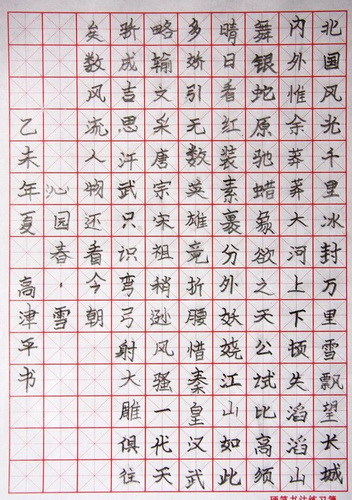 北国风光千里冰封万里雪飘望长城
内外惟余莽莽大河上下顿失滔滔山
舞银蛇原驰蜡象欲之天公试比高须
晴日看红装素裹分外妖娆江山如此
多娇引无数英雄竞折腰惜秦皇汉武
略输文采唐宗宋祖稍逊风骚一代天
骄成吉思汗武只识弯弓射大雕俱往
矣数风流人物还看今朝
沁园春·雪
乙未年夏 高津平书